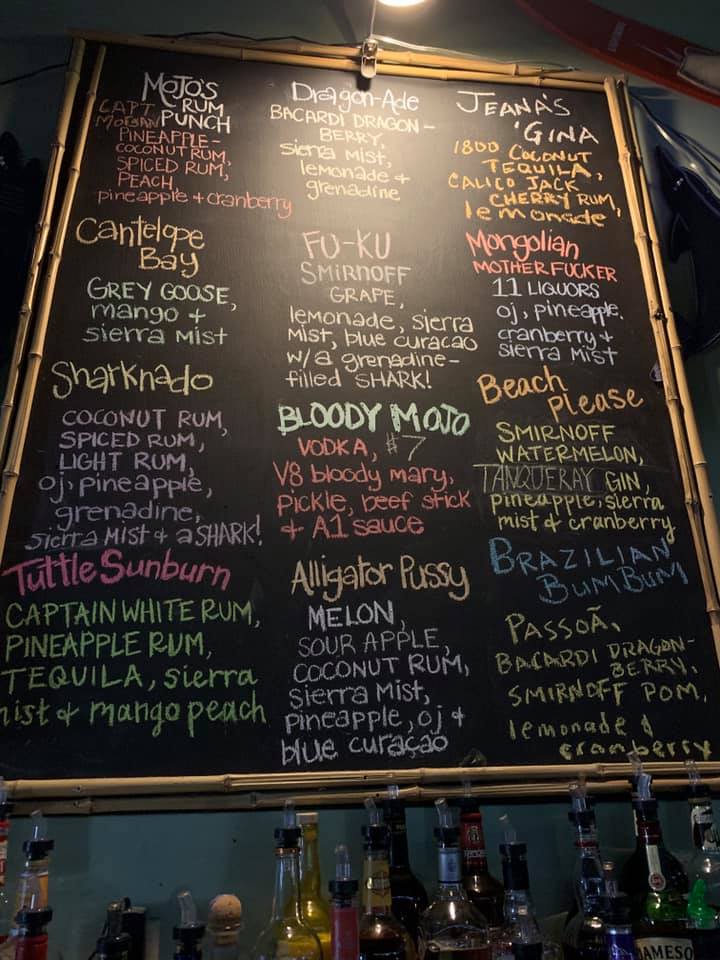 MOJO'S
RUM
PUNCH
CAPT.
MORGAN
PINEAPPLE-
COCONUT RUM,
SPICED RUM,
PEACH,
pineapple + cranberry
Cantelope
Bay
GREY GOOSE,
mango +
sierra mist
Sharknado
COCONUT RUM,
SPICED RUM,
LIGHT RUM,
oj, pineapple,
grenadine,
sierra mist + a SHARK!
Tuttle Sunburn
CAPTAIN WHITE RUM,
PINEAPPLE RUM,
TEQUILA, sierra
mist + mango peach
Dragon-Ade
BACARDI DRAGON-
BERRY,
sierra mist,
lemonade +
grenadine
FU-KU
SMIRNOFF
GRAPE,
lemonade, sierra
mist, blue curacao
w/a grenadine-
filled SHARK!
BLOODY MOJO
VODKA, #7
V8 bloody mary,
pickle, beef stick
+ A1 sauce
Alligator Pussy
MELON,
SOUR APPLE,
COCONUT RUM,
sierra mist,
pineapple, oj +
blue curaçao
JEANA'S
'GINA
1800 COCONUT
TEQUILA,
CALICO JACK
CHERRY RUM,
lemonade
Mongolian
MOTHERFUCKER
11 LIQUORS
oj, pineapple,
cranberry +
sierra mist
Beach
please
SMIRNOFF
WATERMELON,
TANQUERAY GIN,
pineapple, sierra
mist + cranberry
BRAZILIAN
BUMBUM
PASSOÃ,
BACARDI DRAGON-
BERRY,
SMIRNOFF POM,
lemonade &
cranberry
JAMESO